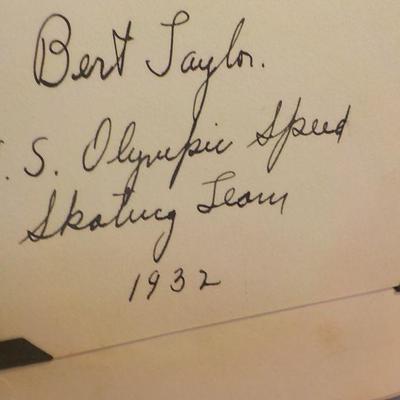 Bert Taylor.
. S. Olympic Speed
Skating Team
1932